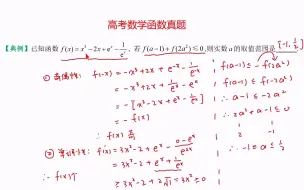 高考数学函数真题
【典例】已知函数 f(x)=x³-2x+eˣ-1/eˣ, 若 f(a-1)+f(2a²)≤0,则实数a的取值范围是 [-1, 1/2]
f(-x) = -x³+2x + e⁻ˣ - eˣ
= -x³+2x + 1/eˣ - eˣ
= -[x³-2x+eˣ-1/eˣ]
= -f(x)
∴ f(x) 奇
f'(x) = 3x²-2+eˣ - (0-eˣ)/e²ˣ
= 3x²-2 + eˣ + 1/eˣ
≥ 3x²-2 + 2√1 = 3x² ≥ 0
∴ f(x)↑
f(a-1) ≤ -f(2a²)
∴ f(a-1) ≤ f(-2a²)
∴ a-1 ≤ -2a²
∴ 2a²+a-1 ≤ 0
2 -1
1 1
∴ -1 ≤ a ≤ 1/2